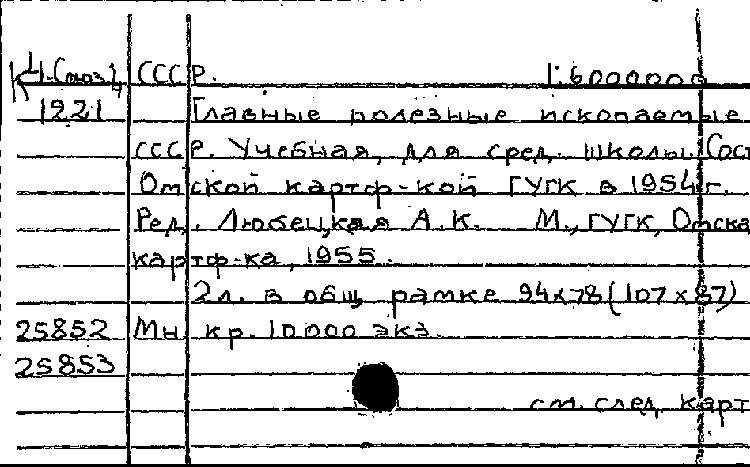 СССР. 1:6000000
1221 Главные полезные ископаемые
СССР. Учебная, для сред. школы. Сост
Омской картф-кой ГУГК в 1954 г.
Ред. Любецкая А.К. М., ГУГК, Омска
картф-ка, 1955.
2л. в общ рамке 94x78 (107x87)
25852 Мн. кр. 10.000 экз.
25853
см. след карт